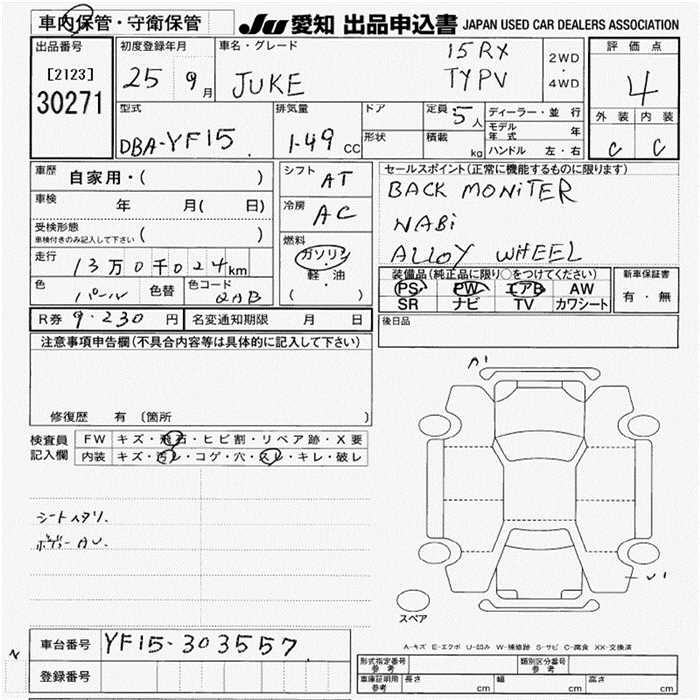 車内保管・守衛保管
JU 愛知 出品申込書 JAPAN USED CAR DEALERS ASSOCIATION
出品番号
[2123]
30271
初度登録年月
25 9月
車名・グレード
JUKE
15RX
TYPV
2WD
・
4WD
評価点
4
外装 内装
C C
型式
DBA-YF15
排気量
1.49 CC
ドア
形状
定員 5人
積載 kg
ディーラー・並行
モデル年式 年
ハンドル 左・右
車歴 自家用・( )
車検 年 月( 日)
受検形態
車検付きのみ記入して下さい ( )
走行 13万0千024km
色 パール 色替 色コード QAB
シフト AT
冷房 AC
燃料
ガソリン
軽・油
( )
セールスポイント(正常に機能するものに限ります)
BACK MONITER
NABi
ALLOY WHEEL
装備品(純正品に限り○をつけてください)
PS PW エアB AW
SR ナビ TV カワシート
新車保証書
有・無
R券 9.230 円 名変通知期限 月 日
後日品
注意事項申告欄(不具合内容等は具体的に記入して下さい)
修復歴 有 〔箇所 〕
検査員
記入欄
FW キズ・飛石・ヒビ割・リペア跡・X要
内装 キズ・汚レ・コゲ・穴・スレ・キレ・破レ
シートヘタリ.
ボディーAU.
スペア
A-キズ E-エクボ U-凹み W-補修跡 S-サビ C-腐食 XX-交換済
車台番号 YF15-303557
登録番号
形式指定番号 参考
類別区分番号 参考
車庫証明用 参考 長さ cm 幅 cm 高さ cm